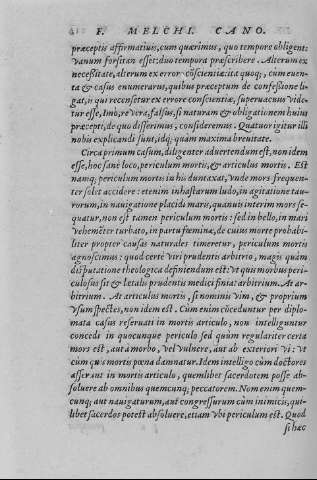 F. MELCHI. CANO.
præceptis affirmatiuis, cum quærimus, quo tempore obligent:
vanum forsitan esset: duo tempora præscribere. Alterum ex
necessitate, alterum ex error cōscientiæ: ita quoq;, cum euen-
ta & casus enumerarus, quibus præceptum de confessione li-
gat, si qui recensetur ex errore conscientiæ, superuacuus vide-
tur esse, Imò, re vera, falsus, si naturam & obligationem huius
præcepti, de quo disserimus, consideremus. Quatuor igitur illi
nobis explicandi sunt, idq; quàm maxima breuitate.
Circa primum casum, diligenter aduertendum est, non idem
esse, hoc sanè loco, periculum mortis, & articulus mortis. Est
namq; periculum mortis in his duntaxat, vnde mors frequen-
ter solet accidere: etenim in hastarum ludo, in agitatione tau-
rorum, in nauigatione placidi maris, quanuis interim mors se-
quatur, non est tamen periculum mortis: sed in bello, in mari
vehemēter turbato, in partu fœminæ, de cuius morte probabi-
liter propter causas naturales timeretur, periculum mortis
agnoscimus: quod certè viri prudentis arbitrio, magis quàm
disputatione theologica definiendum est: vt quis morbus peri-
culosus sit & letalis prudentis medici finitur arbitrium. At ar-
bitrium. At articulus mortis, si nominis vim, & proprium
vsum spectes, non idem est. Cum enim cōceduntur per diplo-
mata casus reseruati in mortis articulo, non intelliguntur
concedi in quocunque periculo sed quùm regulariter certa
mors est, aut à morbo, vel vulnere, aut ab exteriori vi: vt
cùm quis mortis pœna damnatur. Idem intelligo cùm doctores
asserunt in mortis articulo, quemlibet sacerdotem posse ab-
soluere ab omnibus quemcunq; peccatorem. Nom enim quem-
cunq; aut nauigaturum, aut congressurum cùm inimicis, qui-
libet sacerdos potest absoluere, etiam vbi periculum est. Quod
si hæc